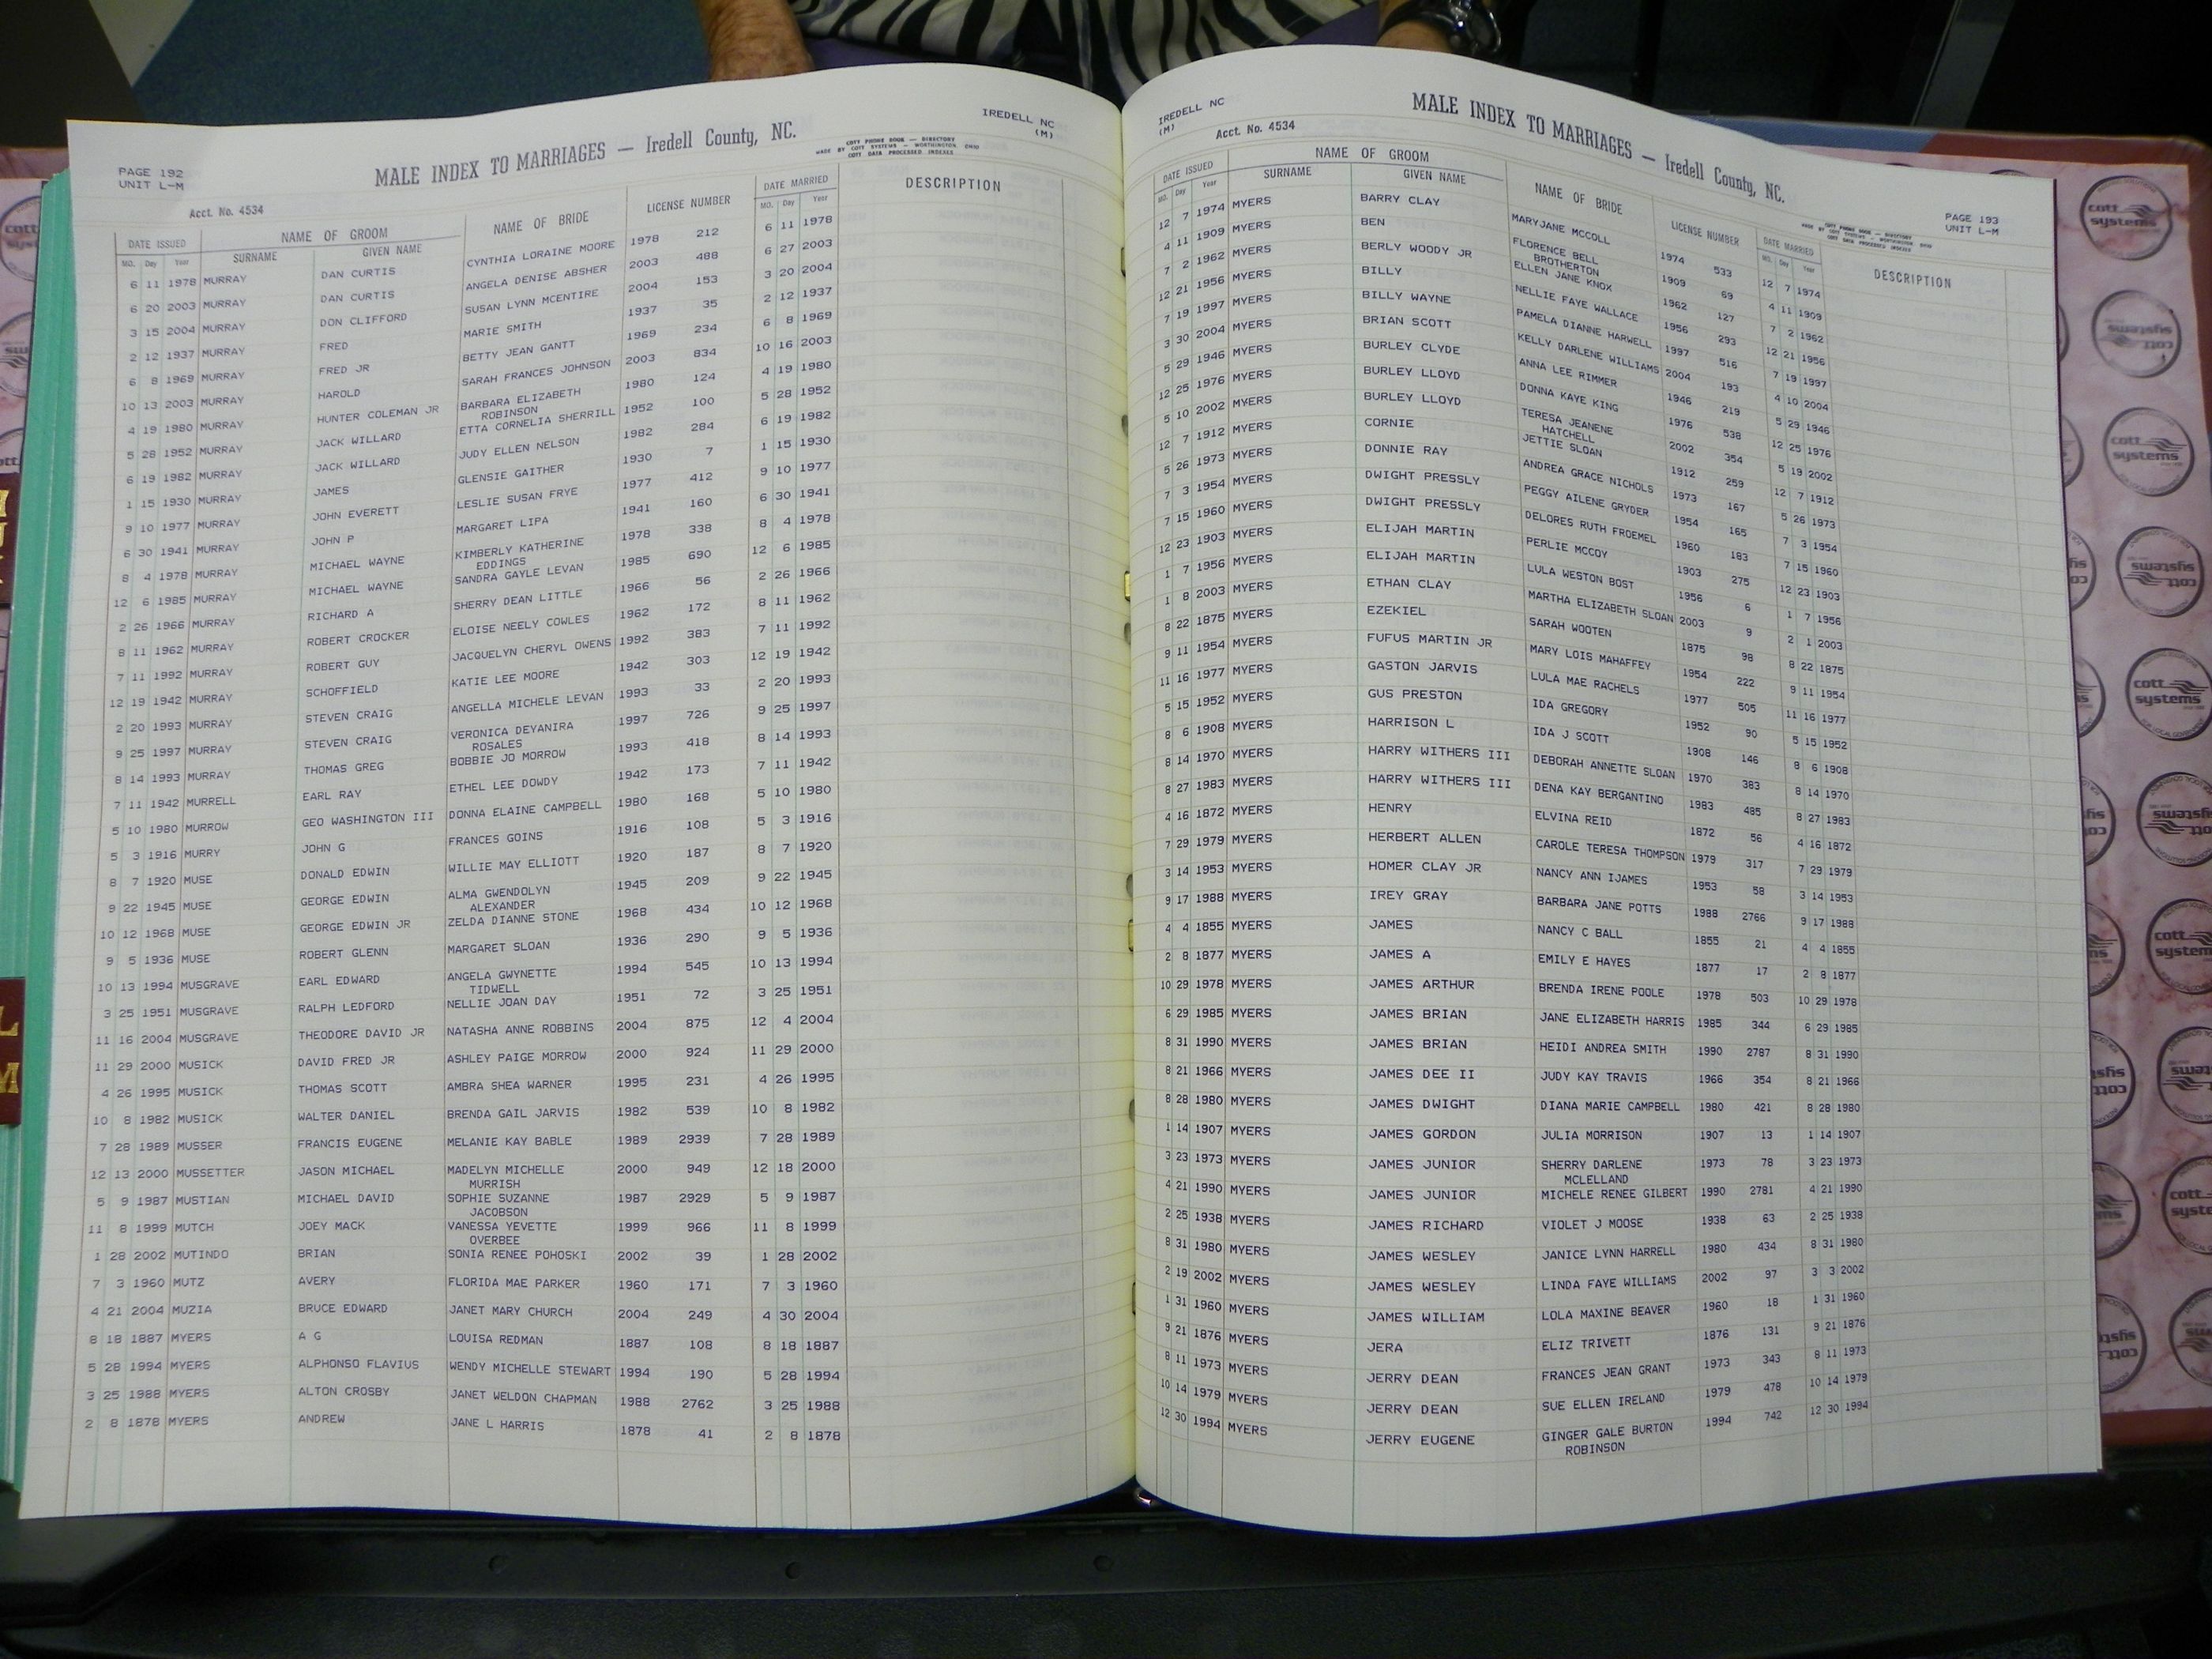 PAGE 192
UNIT L-M
MALE INDEX TO MARRIAGES — Iredell County, NC.
IREDELL NC
(M)
Acct. No. 4534
COTT PHONE BOOK — DIRECTORY
MADE BY COTT SYSTEMS — WORTHINGTON OHIO
COTT DATA PROCESSED INDEXES
DATE ISSUED NAME OF GROOM NAME OF BRIDE LICENSE NUMBER DATE MARRIED DESCRIPTION
MO. Day Year SURNAME GIVEN NAME MO. Day Year
6 11 1978 MURRAY DAN CURTIS CYNTHIA LORAINE MOORE 1978 212 6 11 1978
6 20 2003 MURRAY DAN CURTIS ANGELA DENISE ABSHER 2003 488 6 27 2003
3 15 2004 MURRAY DON CLIFFORD SUSAN LYNN MCENTIRE 2004 153 3 20 2004
2 12 1937 MURRAY FRED MARIE SMITH 1937 35 2 12 1937
6 8 1969 MURRAY FRED JR BETTY JEAN GANTT 1969 234 6 8 1969
10 13 2003 MURRAY HAROLD SARAH FRANCES JOHNSON 2003 834 10 16 2003
4 19 1980 MURRAY HUNTER COLEMAN JR BARBARA ELIZABETH 1980 124 4 19 1980
ROBINSON
5 28 1952 MURRAY JACK WILLARD ETTA CORNELIA SHERRILL 1952 100 5 28 1952
6 19 1982 MURRAY JACK WILLARD JUDY ELLEN NELSON 1982 284 6 19 1982
1 15 1930 MURRAY JAMES GLENSIE GAITHER 1930 7 1 15 1930
9 10 1977 MURRAY JOHN EVERETT LESLIE SUSAN FRYE 1977 412 9 10 1977
6 30 1941 MURRAY JOHN P MARGARET LIPA 1941 160 6 30 1941
8 4 1978 MURRAY MICHAEL WAYNE KIMBERLY KATHERINE 1978 338 8 4 1978
EDDINGS
12 6 1985 MURRAY MICHAEL WAYNE SANDRA GAYLE LEVAN 1985 690 12 6 1985
2 26 1966 MURRAY RICHARD A SHERRY DEAN LITTLE 1966 56 2 26 1966
8 11 1962 MURRAY ROBERT CROCKER ELOISE NEELY COWLES 1962 172 8 11 1962
7 11 1992 MURRAY ROBERT GUY JACQUELYN CHERYL OWENS 1992 383 7 11 1992
12 19 1942 MURRAY SCHOFFIELD KATIE LEE MOORE 1942 303 12 19 1942
2 20 1993 MURRAY STEVEN CRAIG ANGELLA MICHELE LEVAN 1993 33 2 20 1993
9 25 1997 MURRAY STEVEN CRAIG VERONICA DEYANIRA 1997 726 9 25 1997
ROSALES
8 14 1993 MURRAY THOMAS GREG BOBBIE JO MORROW 1993 418 8 14 1993
7 11 1942 MURRELL EARL RAY ETHEL LEE DOWDY 1942 173 7 11 1942
5 10 1980 MURROW GEO WASHINGTON III DONNA ELAINE CAMPBELL 1980 168 5 10 1980
5 3 1916 MURRY JOHN G FRANCES GOINS 1916 108 5 3 1916
8 7 1920 MUSE DONALD EDWIN WILLIE MAY ELLIOTT 1920 187 8 7 1920
9 22 1945 MUSE GEORGE EDWIN ALMA GWENDOLYN 1945 209 9 22 1945
ALEXANDER
10 12 1968 MUSE GEORGE EDWIN JR ZELDA DIANNE STONE 1968 434 10 12 1968
9 5 1936 MUSE ROBERT GLENN MARGARET SLOAN 1936 290 9 5 1936
10 13 1994 MUSGRAVE EARL EDWARD ANGELA GWYNETTE 1994 545 10 13 1994
TIDWELL
3 25 1951 MUSGRAVE RALPH LEDFORD NELLIE JOAN DAY 1951 72 3 25 1951
11 16 2004 MUSGRAVE THEODORE DAVID JR NATASHA ANNE ROBBINS 2004 875 12 4 2004
11 29 2000 MUSICK DAVID FRED JR ASHLEY PAIGE MORROW 2000 924 11 29 2000
4 26 1995 MUSICK THOMAS SCOTT AMBRA SHEA WARNER 1995 231 4 26 1995
10 8 1982 MUSICK WALTER DANIEL BRENDA GAIL JARVIS 1982 539 10 8 1982
7 28 1989 MUSSER FRANCIS EUGENE MELANIE KAY BABLE 1989 2939 7 28 1989
12 13 2000 MUSSETTER JASON MICHAEL MADELYN MICHELLE 2000 949 12 18 2000
MURRISH
5 9 1987 MUSTIAN MICHAEL DAVID SOPHIE SUZANNE 1987 2929 5 9 1987
JACOBSON
11 8 1999 MUTCH JOEY MACK VANESSA YEVETTE 1999 966 11 8 1999
OVERBEE
1 28 2002 MUTINDO BRIAN SONIA RENEE POHOSKI 2002 39 1 28 2002
7 3 1960 MUTZ AVERY FLORIDA MAE PARKER 1960 171 7 3 1960
4 21 2004 MUZIA BRUCE EDWARD JANET MARY CHURCH 2004 249 4 30 2004
8 18 1887 MYERS A G LOUISA REDMAN 1887 108 8 18 1887
5 28 1994 MYERS ALPHONSO FLAVIUS WENDY MICHELLE STEWART 1994 190 5 28 1994
3 25 1988 MYERS ALTON CROSBY JANET WELDON CHAPMAN 1988 2762 3 25 1988
2 8 1878 MYERS ANDREW JANE L HARRIS 1878 41 2 8 1878
IREDELL NC
(M)
Acct. No. 4534
MALE INDEX TO MARRIAGES — Iredell County, NC.
PAGE 193
UNIT L-M
DATE ISSUED NAME OF GROOM NAME OF BRIDE LICENSE NUMBER DATE MARRIED DESCRIPTION
MO. Day Year SURNAME GIVEN NAME MO. Day Year
12 7 1974 MYERS BARRY CLAY MARYJANE MCCOLL 1974 533 12 7 1974
4 11 1909 MYERS BEN FLORENCE BELL 1909 69 4 11 1909
BROTHERTON
7 2 1962 MYERS BERLY WOODY JR ELLEN JANE KNOX 1962 127 7 2 1962
12 21 1956 MYERS BILLY NELLIE FAYE WALLACE 1956 293 12 21 1956
7 19 1997 MYERS BILLY WAYNE PAMELA DIANNE HARWELL 1997 516 7 19 1997
3 30 2004 MYERS BRIAN SCOTT KELLY DARLENE WILLIAMS 2004 193 4 10 2004
5 29 1946 MYERS BURLEY CLYDE ANNA LEE RIMMER 1946 219 5 29 1946
12 25 1976 MYERS BURLEY LLOYD DONNA KAYE KING 1976 538 12 25 1976
5 10 2002 MYERS BURLEY LLOYD TERESA JEANENE 2002 354 5 19 2002
HATCHELL
12 7 1912 MYERS CORNIE JETTIE SLOAN 1912 259 12 7 1912
5 26 1973 MYERS DONNIE RAY ANDREA GRACE NICHOLS 1973 167 5 26 1973
7 3 1954 MYERS DWIGHT PRESSLY PEGGY AILENE GRYDER 1954 165 7 3 1954
7 15 1960 MYERS DWIGHT PRESSLY DELORES RUTH FROEMEL 1960 183 7 15 1960
12 23 1903 MYERS ELIJAH MARTIN PERLIE MCCOY 1903 275 12 23 1903
1 7 1956 MYERS ELIJAH MARTIN LULA WESTON BOST 1956 6 1 7 1956
1 8 2003 MYERS ETHAN CLAY MARTHA ELIZABETH SLOAN 2003 9 2 1 2003
8 22 1875 MYERS EZEKIEL SARAH WOOTEN 1875 98 8 22 1875
9 11 1954 MYERS FUFUS MARTIN JR MARY LOIS MAHAFFEY 1954 222 9 11 1954
11 16 1977 MYERS GASTON JARVIS LULA MAE RACHELS 1977 505 11 16 1977
5 15 1952 MYERS GUS PRESTON IDA GREGORY 1952 90 5 15 1952
8 6 1908 MYERS HARRISON L IDA J SCOTT 1908 146 8 6 1908
8 14 1970 MYERS HARRY WITHERS III DEBORAH ANNETTE SLOAN 1970 383 8 14 1970
8 27 1983 MYERS HARRY WITHERS III DENA KAY BERGANTINO 1983 485 8 27 1983
4 16 1872 MYERS HENRY ELVINA REID 1872 56 4 16 1872
7 29 1979 MYERS HERBERT ALLEN CAROLE TERESA THOMPSON 1979 317 7 29 1979
3 14 1953 MYERS HOMER CLAY JR NANCY ANN IJAMES 1953 58 3 14 1953
9 17 1988 MYERS IREY GRAY BARBARA JANE POTTS 1988 2766 9 17 1988
4 4 1855 MYERS JAMES NANCY C BALL 1855 21 4 4 1855
2 8 1877 MYERS JAMES A EMILY E HAYES 1877 17 2 8 1877
10 29 1978 MYERS JAMES ARTHUR BRENDA IRENE POOLE 1978 503 10 29 1978
6 29 1985 MYERS JAMES BRIAN JANE ELIZABETH HARRIS 1985 344 6 29 1985
8 31 1990 MYERS JAMES BRIAN HEIDI ANDREA SMITH 1990 2787 8 31 1990
8 21 1966 MYERS JAMES DEE II JUDY KAY TRAVIS 1966 354 8 21 1966
8 28 1980 MYERS JAMES DWIGHT DIANA MARIE CAMPBELL 1980 421 8 28 1980
1 14 1907 MYERS JAMES GORDON JULIA MORRISON 1907 13 1 14 1907
3 23 1973 MYERS JAMES JUNIOR SHERRY DARLENE 1973 78 3 23 1973
MCLELLAND
4 21 1990 MYERS JAMES JUNIOR MICHELE RENEE GILBERT 1990 2781 4 21 1990
2 25 1938 MYERS JAMES RICHARD VIOLET J MOOSE 1938 63 2 25 1938
8 31 1980 MYERS JAMES WESLEY JANICE LYNN HARRELL 1980 434 8 31 1980
2 19 2002 MYERS JAMES WESLEY LINDA FAYE WILLIAMS 2002 97 3 3 2002
1 31 1960 MYERS JAMES WILLIAM LOLA MAXINE BEAVER 1960 18 1 31 1960
9 21 1876 MYERS JERA ELIZ TRIVETT 1876 131 9 21 1876
8 11 1973 MYERS JERRY DEAN FRANCES JEAN GRANT 1973 343 8 11 1973
10 14 1979 MYERS JERRY DEAN SUE ELLEN IRELAND 1979 478 10 14 1979
12 30 1994 MYERS JERRY EUGENE GINGER GALE BURTON 1994 742 12 30 1994
ROBINSON
cott
systems